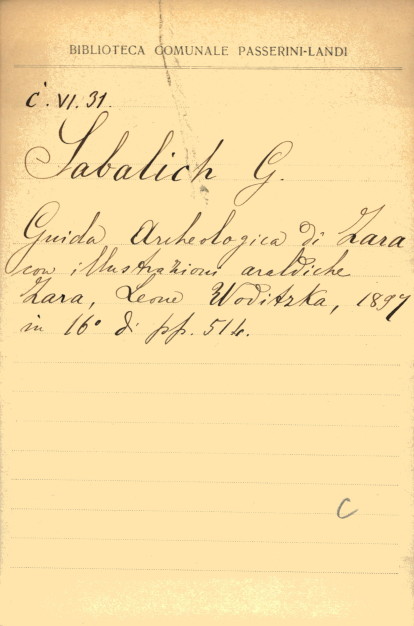 BIBLIOTECA COMUNALE PASSERINI-LANDI
C. VI. 31.
Sabalich G.
Guida Archeologica di Zara
con illustrazioni araldiche
Zara, Leone Woditzka, 1897
in 16° di pp. 514.
C